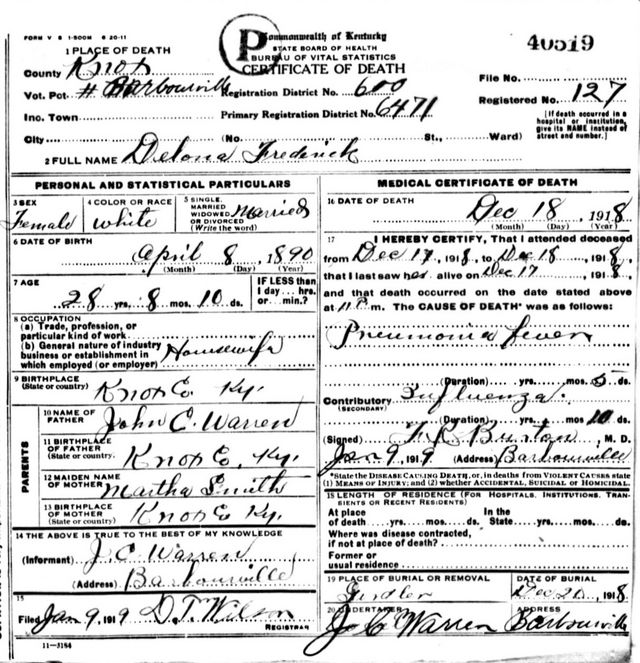 FORM V S 1-500M 6 20-11
Commonwealth of Kentucky
STATE BOARD OF HEALTH
BUREAU OF VITAL STATISTICS
CERTIFICATE OF DEATH
40519
1 PLACE OF DEATH
County Knox
Vot. Pct # Barbourville Registration District No. 600
File No.
Inc. Town Primary Registration District No. 6471
Registered No. 127
City (No. St., Ward)
[If death occurred in a hospital or institution, give its NAME instead of street and number.]
2 FULL NAME Delona Frederick
PERSONAL AND STATISTICAL PARTICULARS
3 SEX Female
4 COLOR OR RACE White
5 SINGLE, MARRIED WIDOWED OR DIVORCED (Write the word) Married
6 DATE OF BIRTH
April 8, 1890
(Month) (Day) (Year)
7 AGE
28 yrs. 8 mos. 10 ds.
IF LESS than 1 day.... hrs. or min.?
8 OCCUPATION
(a) Trade, profession, or particular kind of work
(b) General nature of industry business or establishment in which employed (or employer) Housewife
9 BIRTHPLACE
(State or country) Knox Co. Ky.
PARENTS
10 NAME OF FATHER John C. Warren
11 BIRTHPLACE OF FATHER (State or country. Knox Co. Ky.
12 MAIDEN NAME OF MOTHER Martha Smith
13 BIRTHPLACE OF MOTHER (State or country) Knox Co Ky.
14 THE ABOVE IS TRUE TO THE BEST OF MY KNOWLEDGE
(Informant) J. C. Warren
(Address) Barbourville
15
Filed Jan 9, 1919 D. T. Wilson
REGISTRAR
11-3184
MEDICAL CERTIFICATE OF DEATH
16 DATE OF DEATH
Dec 18, 1918
(Month) (Day) (Year)
17 I HEREBY CERTIFY, That I attended deceased
from Dec 17, 1918, to Dec 18, 1918,
that I last saw her alive on Dec 17, 1918,
and that death occurred on the date stated above
at 11 P.m. The CAUSE OF DEATH* was as follows:
Pneumonia fever
(Duration) yrs. mos. 5 ds.
Contributory Influenza.
(SECONDARY)
(Duration) yrs. mos. 10 ds.
(Signed) Burton, M. D.
Jan 9, 1919 (Address) Barbourville
*State the DISEASE CAUSING DEATH, or, in deaths from VIOLENT CAUSES state
(1) MEANS OF INJURY; and (2) whether ACCIDENTAL, SUICIDAL or HOMICIDAL.
18 LENGTH OF RESIDENCE (FOR HOSPITALS, INSTITUTIONS, TRANSIENTS OR RECENT RESIDENTS)
At place of death yrs. mos. ds. In the State yrs. mos. ds.
Where was disease contracted,
if not at place of death?
Former or
usual residence
19 PLACE OF BURIAL OR REMOVAL
DATE OF BURIAL
Dec 20, 1918
20 UNDERTAKER
J. C. Warren
ADDRESS
Barbourville